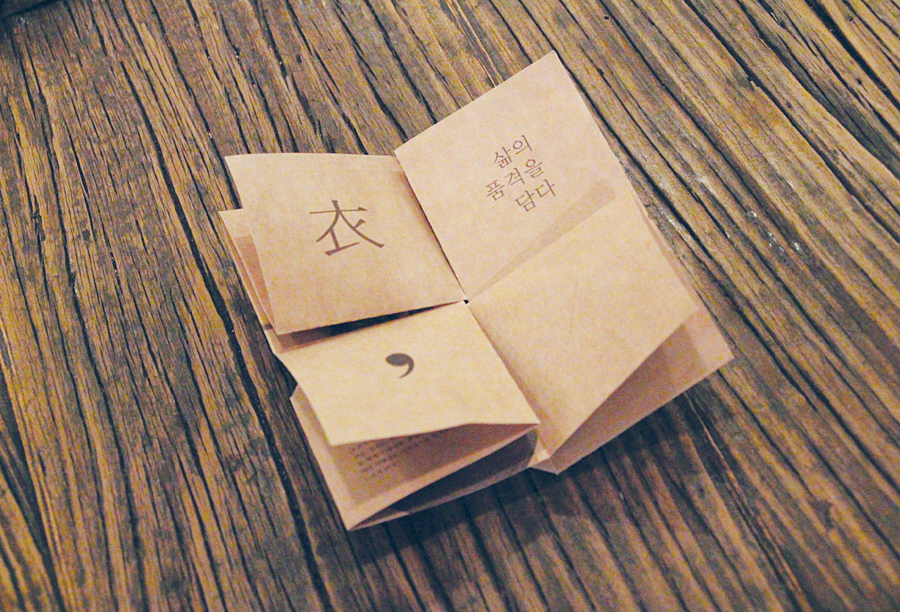 衣
삶의
품격을
담다
,